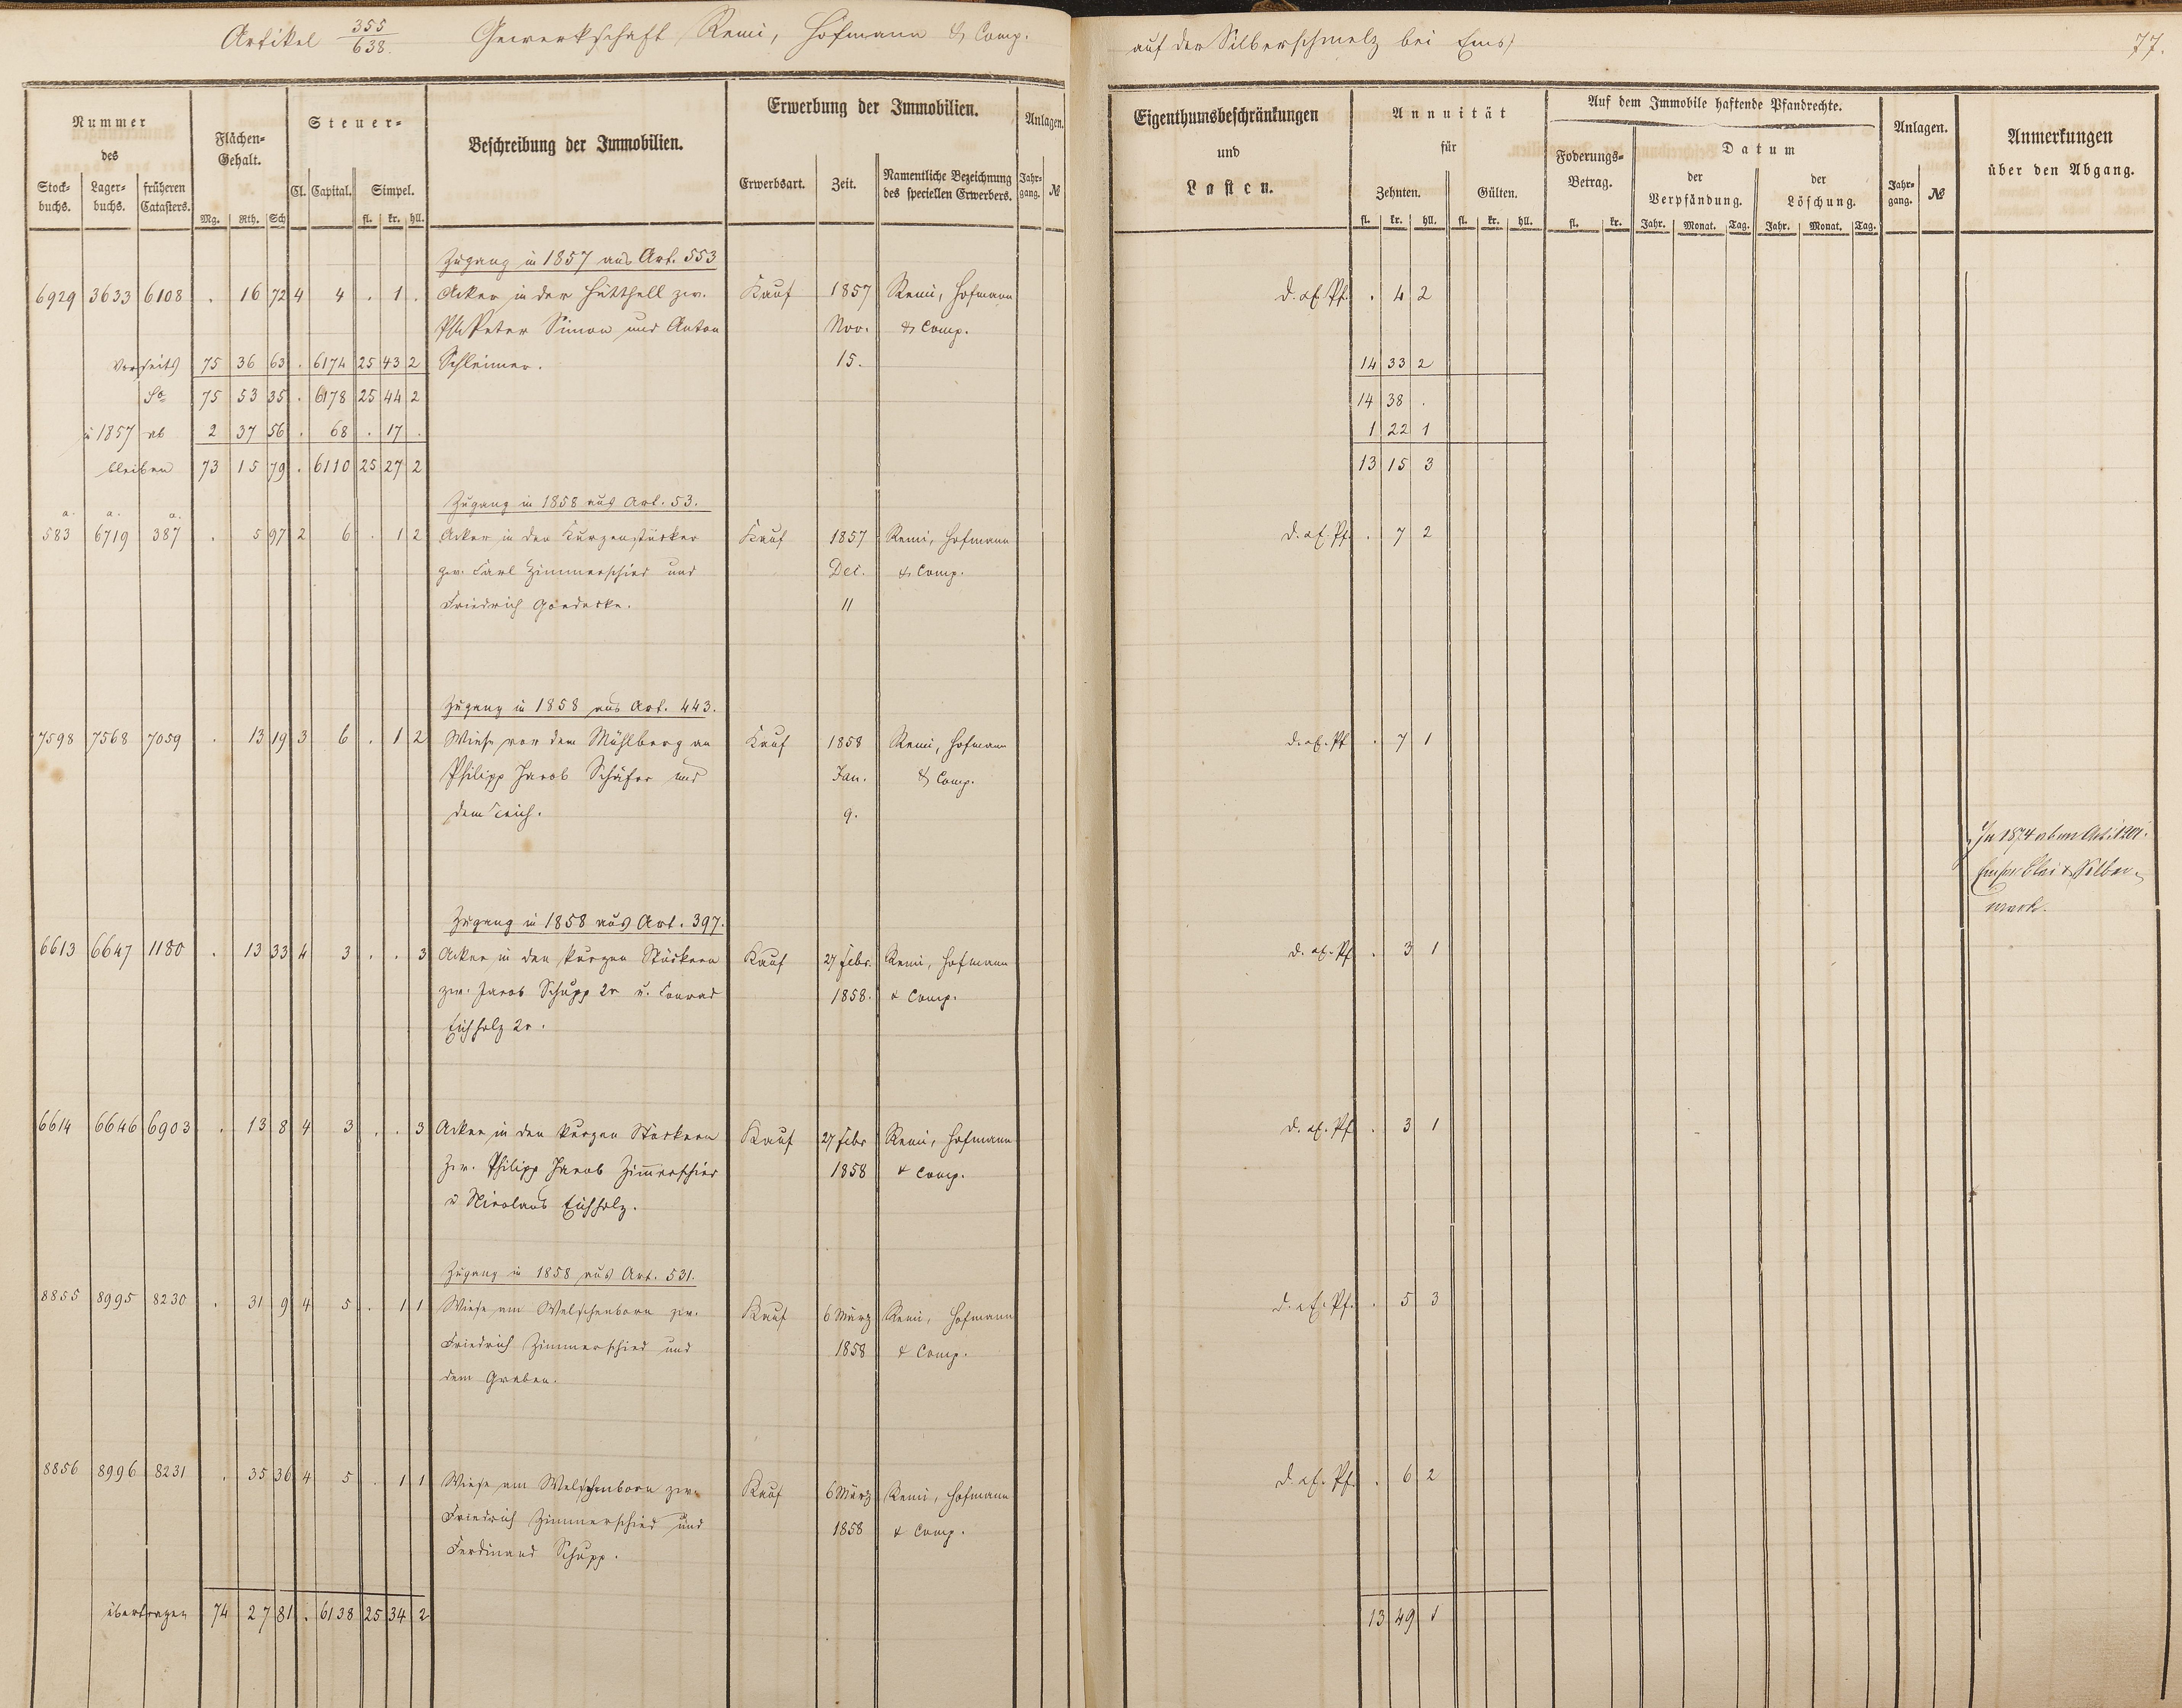 Artikel 355/638. Gewerkschaft Remi, Hofmann & Comp. auf der Silberschmelz bei Ems 77.
Nummer des
Stockbuchs. Lagerbuchs. früheren Catasters.
Flächen-Gehalt.
Mg. Rth. Sch
Steuer-
Cl. Capital. Simpel.
fl. kr. hll.
Beschreibung der Immobilien.
Erwerbung der Immobilien.
Erwerbsart. Zeit. Namentliche Bezeichnung des speciellen Erwerbers.
Anlagen.
Jahrgang. №
Eigenthumsbeschränkungen und Lasten.
Annuität für
Zehnten. Gülten.
fl. kr. hll. fl. kr. hll.
Auf dem Immobile haftende Pfandrechte.
Foderungs-Betrag. Datum
fl. kr.
der Verpfändung. der Löschung.
Jahr. Monat. Tag. Jahr. Monat. Tag.
Anlagen.
Jahrgang. №
Anmerkungen über den Abgang.
Zugang in 1857 aus Art. 553
6929 3633 6108 . 16 72 4 4 . 1 . Acker in der Hütthell zw. Kauf 1857 Remi, Hofmann d. af. Pf. . 4 2
Phil Peter Simon und Anton Nov. & Comp.
vorseits 75 36 63 . 6174 25 43 2 Schleimer. 15. 14 33 2
Sa 75 53 35 . 6178 25 44 2 14 38 .
in 1857 ab 2 37 56 . 68 . 17 . 1 22 1
bleiben 73 15 79 . 6110 25 27 2 13 15 3
Zugang in 1858 aus Art. 53.
a. a. a.
583 6719 387 . 5 97 2 6 . 1 2 Acker in den Kurzenstücker Kauf 1857 Remi, Hofmann d. af. Pf. . 7 2
zw. Carl Zimmerschied und Dec. & Comp.
Friedrich Goedecke. 11
Zugang in 1858 aus Art. 443.
7598 7568 7059 . 13 19 3 6 . 1 2 Wiese vor dem Mühlberg an Kauf 1858 Remi, Hofmann d. af. Pf . 7 1
Philipp Jacob Schäfer und Jan. & Comp.
dem Teich. 9.
In 1874 Art. 1201.
Emser Blei & Silber-
werk.
Zugang in 1858 aus Art. 397.
6613 6647 1180 . 13 33 4 3 . . 3 Acker in den kurzen Stückern Kauf 27 Febr. Remi, Hofmann d. af. Pf . 3 1
zw. Jacob Schupp 2r u. Conrad 1858. & Comp.
Eichholz 2r.
6614 6646 6903 . 13 8 4 3 . . 3 Acker in den kurzen Stückern Kauf 27 Febr Remi, Hofmann d. af. Pf . 3 1
zw. Philipp Jacob Zimmerschied 1858 & Comp.
u Nicolaus Eichholz.
Zugang in 1858 aus Art. 531.
8855 8995 8230 . 31 9 4 5 . 1 1 Wiese am Welschenborn zw. Kauf 6 März Remi, Hofmann d. af. Pf. . 5 3
Friedrich Zimmerschied und 1858 & Comp.
dem Graben.
8856 8996 8231 . 35 36 4 5 . 1 1 Wiese am Welschenborn zw. Kauf 6 März Remi, Hofmann d. af. Pf. . 6 2
Friedrich Zimmerschied und 1858 & Comp.
Ferdinand Schupp.
übertragen 74 27 81 . 6138 25 34 2 13 49 1